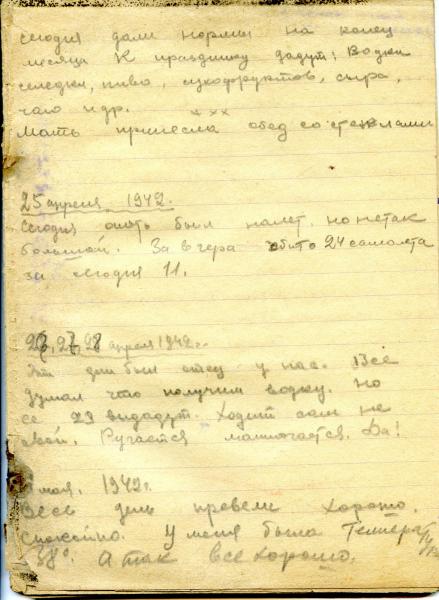 сегодня дали нормы на конец
месяца К празднику дадут: Водки
селедки, пиво, сухофруктов, сыра,
чаго и др.
× × ×
Мать принесла обед со стеклами
25 апреля 1942.
Сегодня опять был налет, но не так
большой. За вчера сбито 24 самолета
за сегодня 11.
26, 27, 28 апреля 1942 г.
Эти дни был отец у нас. Все
думал что получим водку. Но
ее 29 выдадут. Ходит сам не
свой. Ругается. Да!
мая. 1942 г.
Весь день провели хорошо.
спокойно. У меня была Темпера
38°. А так все хорошо.